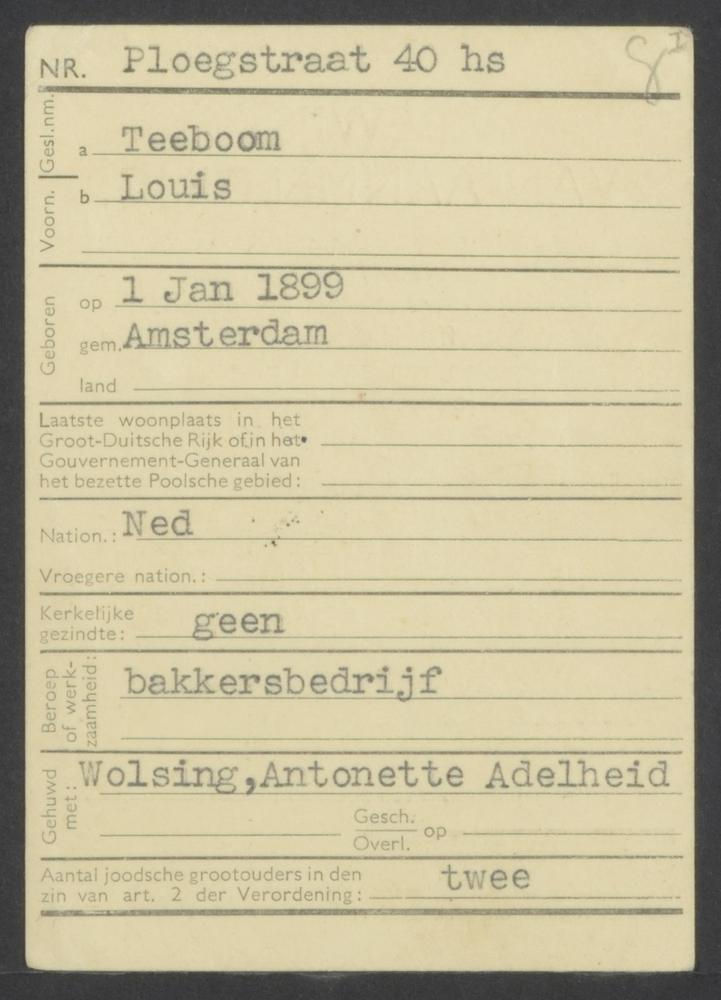 NR. Ploegstraat 40 hs
Gesl.nm. a Teeboom
Voorn. b Louis
Geboren op 1 Jan 1899
gem. Amsterdam
land
Laatste woonplaats in het
Groot-Duitsche Rijk of in het
Gouvernement-Generaal van
het bezette Poolsche gebied:
Nation.: Ned
Vroegere nation.:
Kerkelijke
gezindte: geen
Beroep
of werk-
zaamheid: bakkersbedrijf
Gehuwd
met: Wolsing,Antonette Adelheid
Gesch.
Overl. op
Aantal joodsche grootouders in den
zin van art. 2 der Verordening: twee